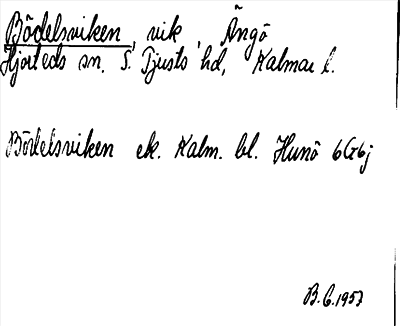 Bödelsviken, vik Ängö
Hjorteds sn. S. Tjusts hd, Kalmar l.
Bödelsviken ek. Kalm. bl. Hunö 6G6j
B.G. 1957